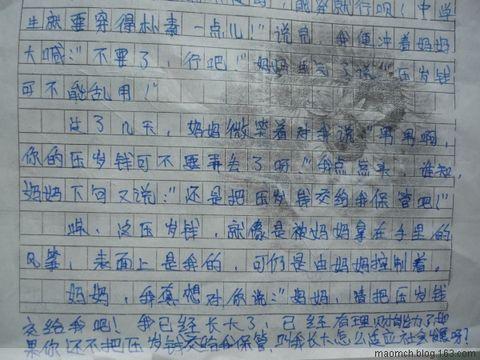 暖就行呗！中学
生就要穿得朴素一点儿！”说完，我便冲着妈妈
大喊：“不要了，行吧！”妈妈说：“压岁钱
可不能乱用！”
过了几天，妈妈微笑着对我说：“男男啊，
你的压岁钱可不要弄丢了呀。”我点点头，谁知，
妈妈下句又说：“还是把压岁钱交给我保管吧！”
哎，这压岁钱，就像是被妈妈拿在手里的
风筝，表面上是我的，可仍是由妈妈控制着。
妈妈，我真想对你说：“妈妈，请把压岁钱
交给我吧！我已经长大了，已经有理财能力了如
果你还不把压岁钱交给我保管，叫我长大怎么适应社会呢呀？
maomch.blog.163.com